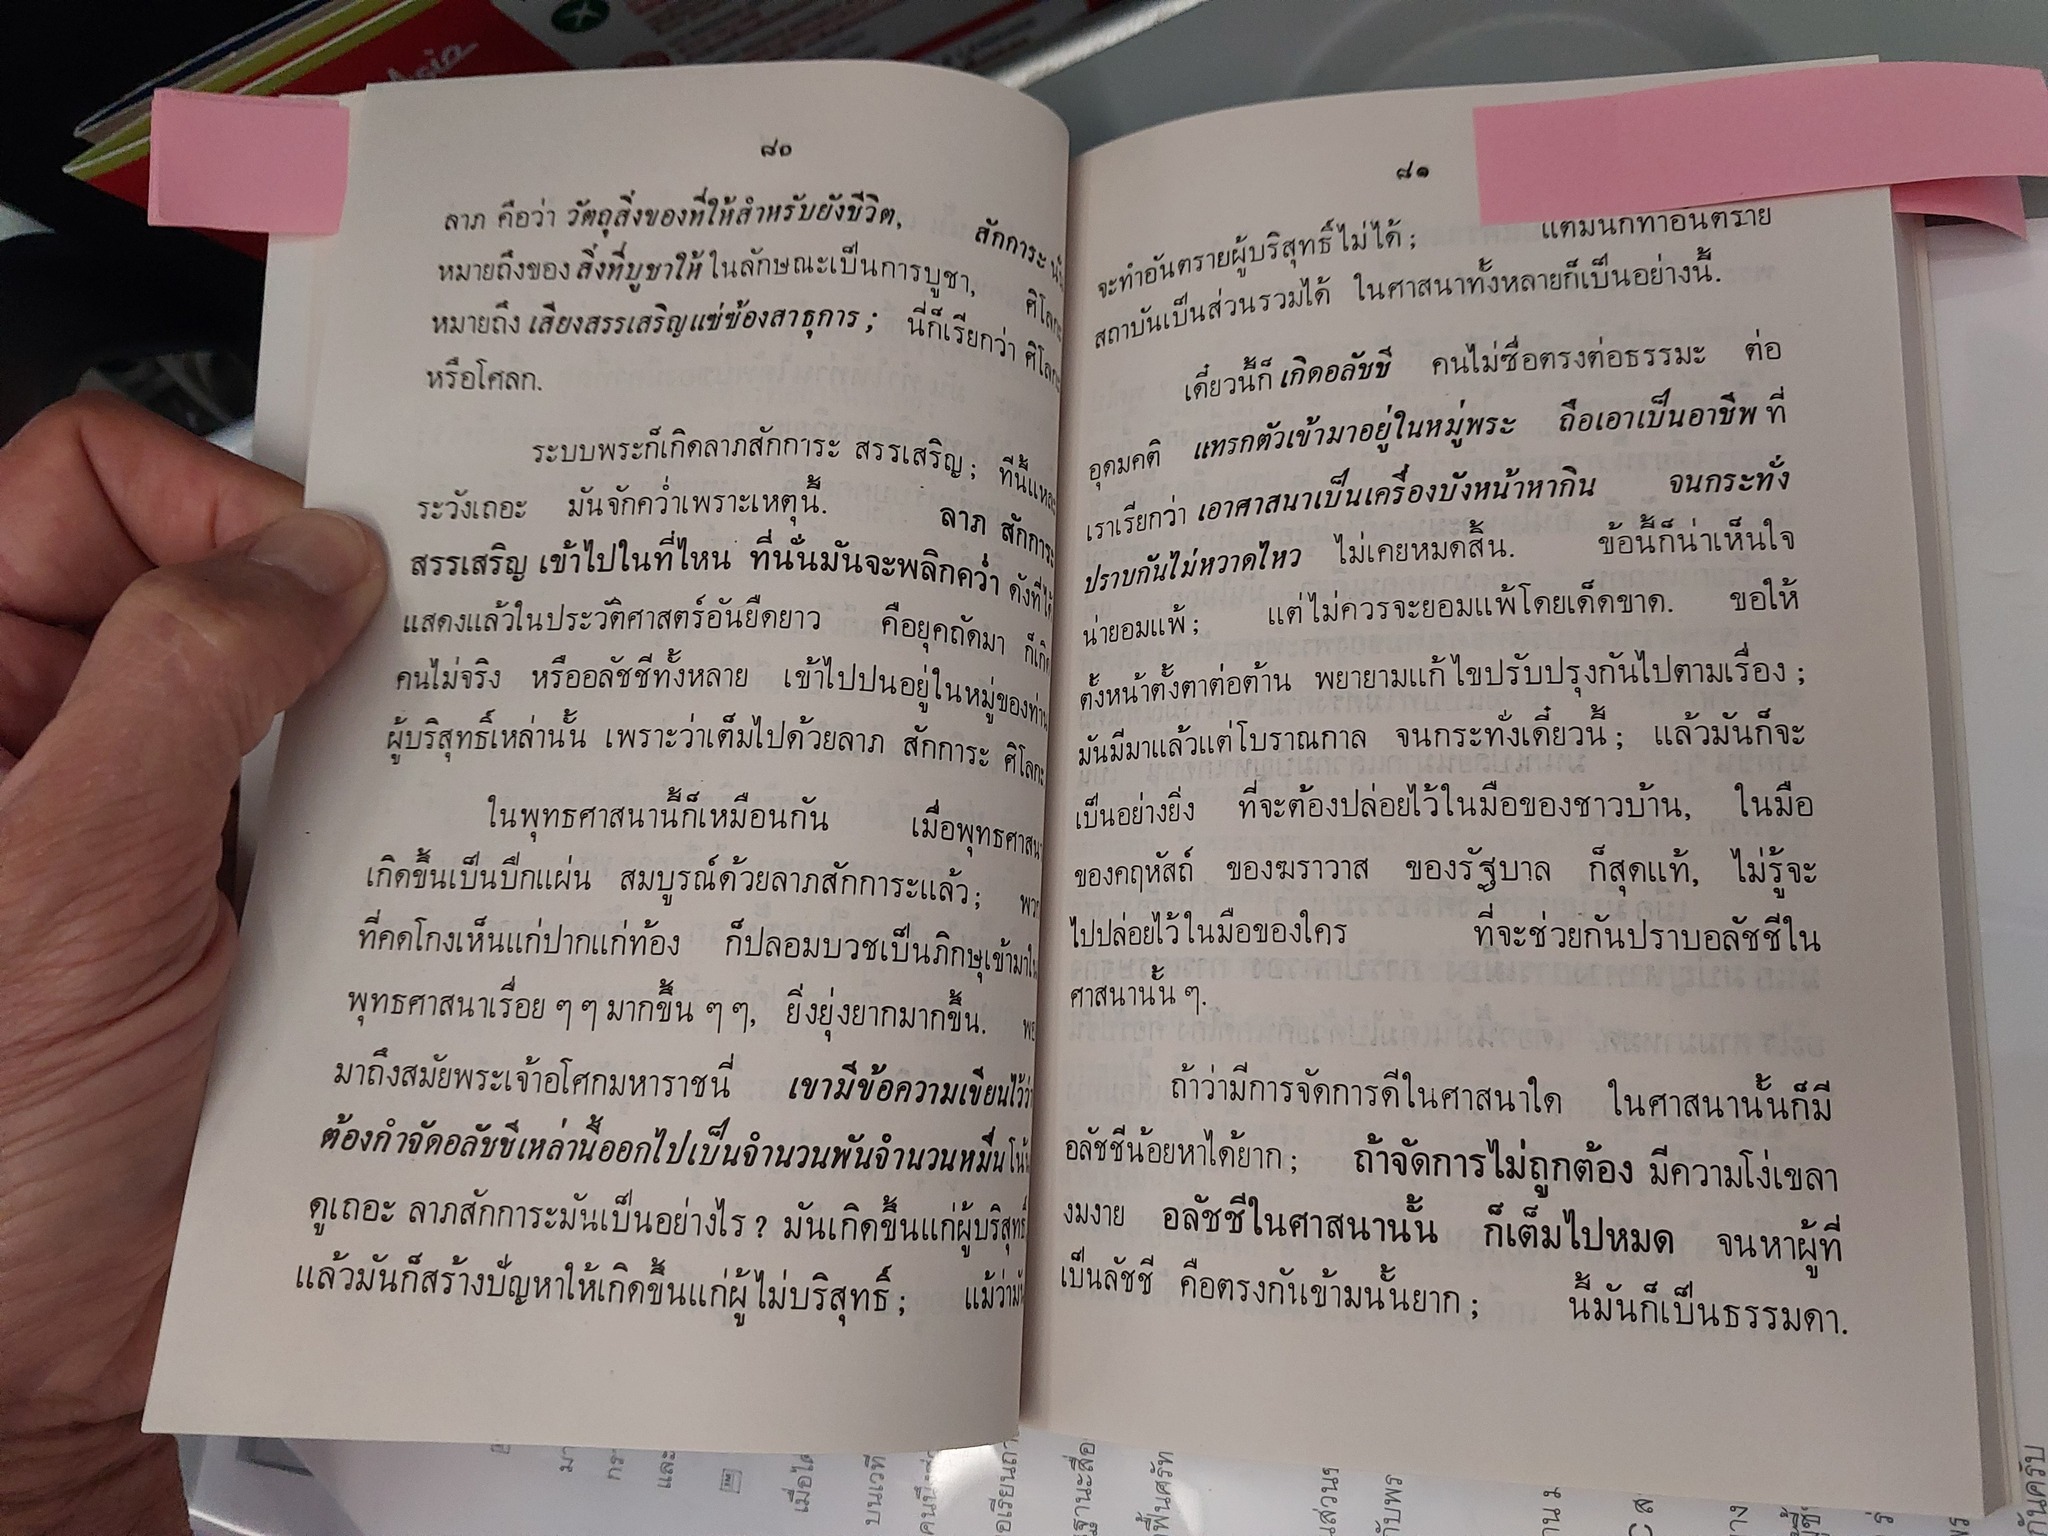 ๘๐
ลาภ คือว่า วัตถุสิ่งของที่ให้สำหรับยังชีวิต, สักการะ
หมายถึงของ สิ่งที่บูชาให้ ในลักษณะเป็นการบูชา, ศิโลกะ
หมายถึง เสียงสรรเสริญแซ่ซ้องสาธุการ ; นี่ก็เรียกว่า ศิโลกะ
หรือโศลก.
ระบบพระก็เกิดลาภสักการะ สรรเสริญ ; ทีนี้แหละ
ระวังเถอะ มันจักคว่ำเพราะเหตุนี้. ลาภ สักการะ
สรรเสริญ เข้าไปในที่ไหน ที่นั่นมันจะพลิกคว่ำ ดังที่ได้
แสดงแล้วในประวัติศาสตร์อันยืดยาว คือยุคถัดมา ก็เกิด
คนไม่จริง หรืออลัชชีทั้งหลาย เข้าไปปนอยู่ในหมู่ของท่าน
ผู้บริสุทธิ์เหล่านั้น เพราะว่าเต็มไปด้วยลาภ สักการะ ศิโลกะ
ในพุทธศาสนานี้ก็เหมือนกัน เมื่อพุทธศาสนา
เกิดขึ้นเป็นปึกแผ่น สมบูรณ์ด้วยลาภสักการะแล้ว ; พวก
ที่คดโกงเห็นแก่ปากแก่ท้อง ก็ปลอมบวชเป็นภิกษุเข้ามาใน
พุทธศาสนาเรื่อย ๆ ๆ มากขึ้น ๆ ๆ, ยิ่งยุ่งยากมากขึ้น.
มาถึงสมัยพระเจ้าอโศกมหาราชนี่ เขามีข้อความเขียนไว้ว่า
ต้องกำจัดอลัชชีเหล่านี้ออกไปเป็นจำนวนพันจำนวนหมื่น
ดูเถอะ ลาภสักการะมันเป็นอย่างไร ? มันเกิดขึ้นแก่ผู้บริสุทธิ์
แล้วมันก็สร้างปัญหาให้เกิดขึ้นแก่ผู้ไม่บริสุทธิ์ ; แม้ว่ามัน
๘๑
จะทำอันตรายผู้บริสุทธิ์ไม่ได้ ; แต่มันก็ทำอันตราย
สถาบันเป็นส่วนรวมได้ ในศาสนาทั้งหลายก็เป็นอย่างนี้.
เดี๋ยวนี้ก็ เกิดอลัชชี คนไม่ซื่อตรงต่อธรรมะ ต่อ
อุดมคติ แทรกตัวเข้ามาอยู่ในหมู่พระ ถือเอาเป็นอาชีพ ที่
เราเรียกว่า เอาศาสนาเป็นเครื่องบังหน้าหากิน จนกระทั่ง
ปราบกันไม่หวาดไหว ไม่เคยหมดสิ้น. ข้อนี้ก็น่าเห็นใจ
น่ายอมแพ้ ; แต่ไม่ควรจะยอมแพ้โดยเด็ดขาด. ขอให้
ตั้งหน้าตั้งตาต่อต้าน พยายามแก้ไขปรับปรุงกันไปตามเรื่อง ;
มันมีมาแล้วแต่โบราณกาล จนกระทั่งเดี๋ยวนี้ ; แล้วมันก็จะ
เป็นอย่างยิ่ง ที่จะต้องปล่อยไว้ในมือของชาวบ้าน, ในมือ
ของคฤหัสถ์ ของฆราวาส ของรัฐบาล ก็สุดแท้, ไม่รู้จะ
ไปปล่อยไว้ในมือของใคร ที่จะช่วยกันปราบอลัชชีใน
ศาสนานั้น ๆ.
ถ้าว่ามีการจัดการดีในศาสนาใด ในศาสนานั้นก็มี
อลัชชีน้อยหาได้ยาก ; ถ้าจัดการไม่ถูกต้อง มีความโง่เขลา
งมงาย อลัชชีในศาสนานั้น ก็เต็มไปหมด จนหาผู้ที่
เป็นลัชชี คือตรงกันข้ามนั้นยาก ; นี้มันก็เป็นธรรมดา.